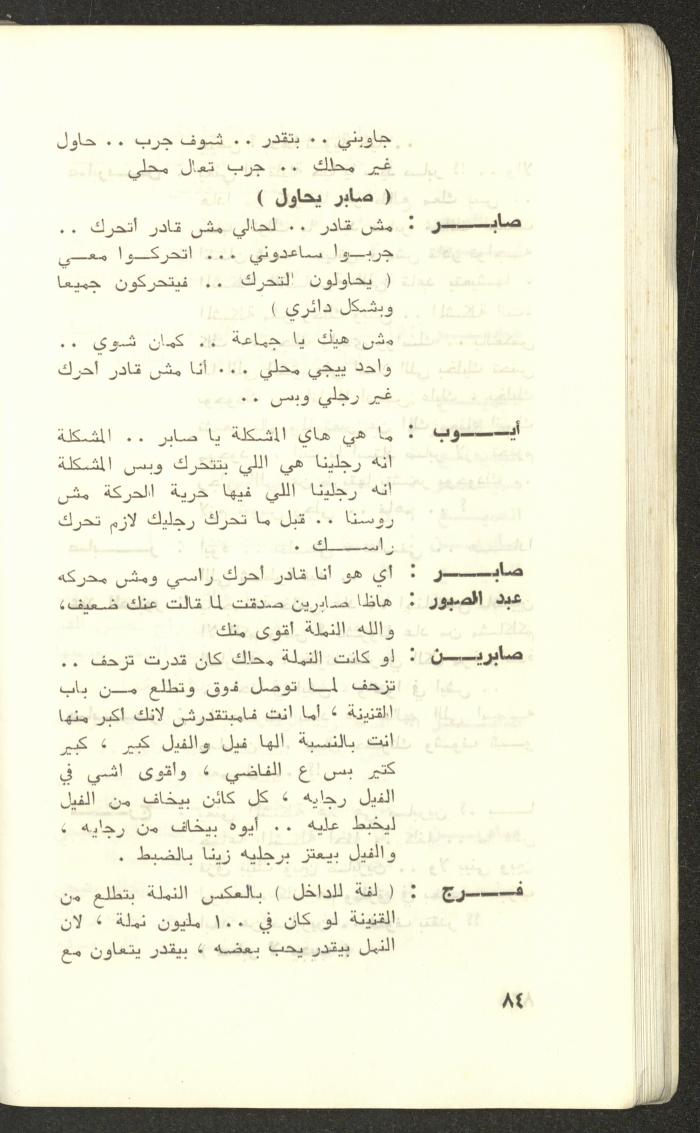 جاوبني .. بتقدر .. شوف جرب .. حاول
غير محلك .. جرب تعال محلي
( صابر يحاول )
صابــــر : مش قادر .. لحالي مش قادر أتحرك ..
جربــوا ساعدوني ... اتحركــوا معــي
( يحاولون التحرك .. فيتحركون جميعا
وبشكل دائري )
مش هيك يا جماعة .. كمان شوي ..
واحد ييجي محلي ... أنا مش قادر أحرك
غير رجلي وبس ..
أيــــوب : ما هي هاي المشكلة يا صابر .. المشكلة
انه رجلينا هي اللي بتتحرك وبس المشكلة
انه رجلينا اللي فيها حرية الحركة مش
روسنا .. قبل ما تحرك رجليك لازم تحرك
راســـك .
صابــــر : أي هو أنا قادر أحرك راسي ومش محركه
عبد الصبور : هاظا صابرين صدقت لما قالت عنك ضعيف،
والله النملة أقوى منك
صابريــن : لو كانت النملة محلك كان قدرت تزحف ..
تزحف لمــا توصل فوق وتطلع مــن باب
القنينة ، أما انت فامبتقدرش لانك اكبر منها
انت بالنسبة الها فيل والفيل كبير ، كبير
كتير بس ع الفاضي ، وأقوى اشي في
الفيل رجليه ، كل كائن بيخاف من الفيل
ليخبط عليه .. أيوه بيخاف من رجليه ،
والفيل بيعتز برجليه زينا بالضبط .
فــــرج : ( لفة للداخل ) بالعكس النملة بتطلع من
القنينة لو كان في ١٠٠ مليون نملة ، لان
النمل بيقدر يحب بعضه ، بيقدر يتعاون مع
٨٤